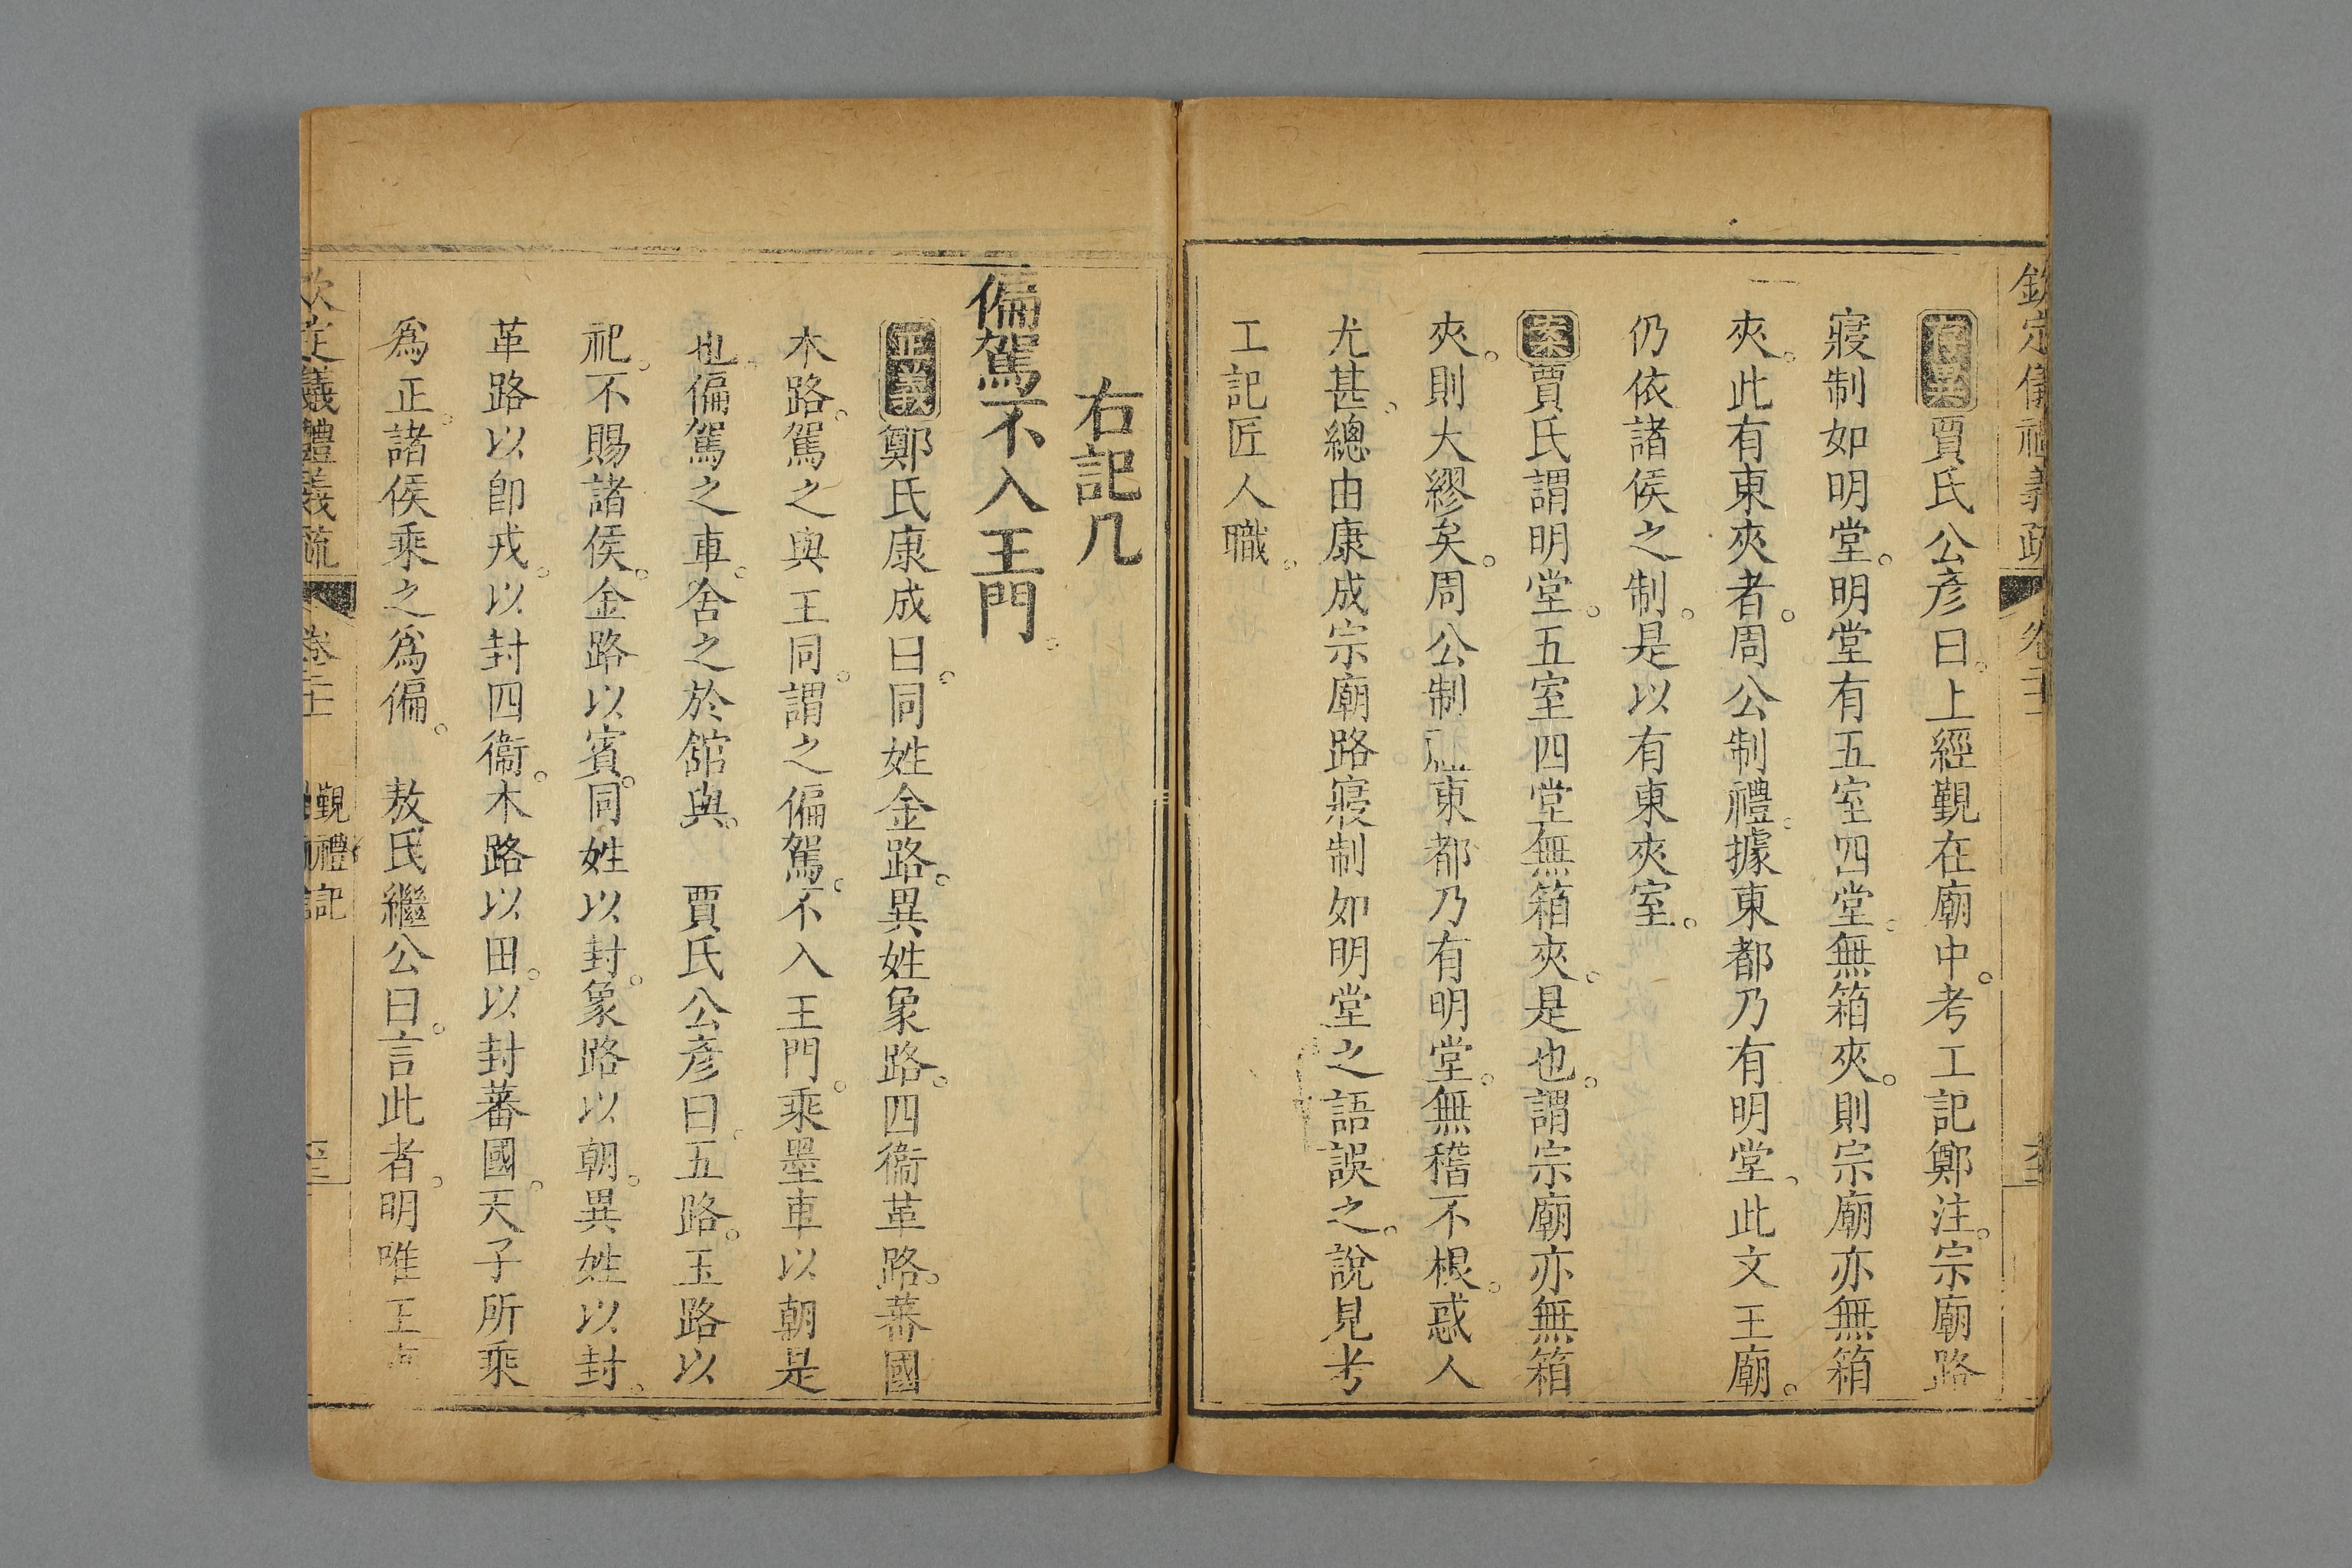 欽定儀禮義疏　卷二十
存異賈氏公彥曰。上經覲在廟中。考工記鄭注。宗廟路
寢制如明堂。明堂有五室四堂。無箱夾。則宗廟亦無箱
夾。此有東夾者。周公制禮。據東都乃有明堂。此文王廟。
仍依諸侯之制。是以有東夾室。
案賈氏謂明堂。五室四堂無箱夾。是也。謂宗廟亦無箱
夾。則大繆矣。周公制禮東都乃有明堂。無稽不根。惑人
尤甚。總由康成宗廟路寢制如明堂之語誤之。說見考
工記匠人職。
右記几
偏駕不入王門。
正義鄭氏康成曰。同姓金路。異姓象路。四衞革路。蕃國
木路。駕之與王同。謂之偏駕。不入王門。乘墨車以朝是
也。偏駕之車。舍之於館與。　賈氏公彥曰。五路。玉路以
祀。不賜諸侯。金路以賓。同姓以封。象路以朝。異姓以封。
革路以卽戎。以封四衞。木路以田。以封蕃國。天子所乘
爲正。諸侯乘之爲偏。　敖氏繼公曰。言此者。明唯王車
欽定儀禮義疏　卷二十　覲禮記